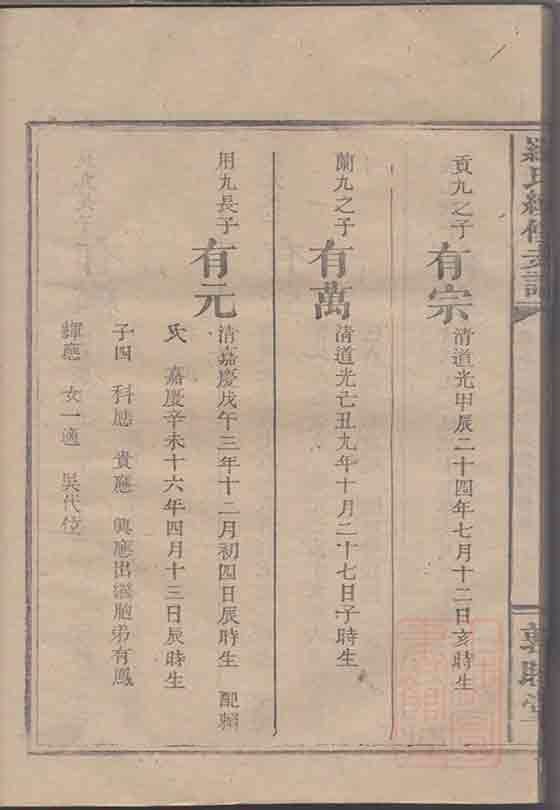 羅氏續修支譜
貢九之子
有宗
清道光甲辰二十四年七月十二日亥時生
蘭九之子
有萬
清道光亡丑九年十月二十七日子時生
用九長子
有元
清嘉慶戊午三年十二月初四日辰時生 配賴
氏 嘉慶辛未十六年四月十三日辰時生
子四 科應 貴應 興應出繼胞弟有鳳
輝應 女一適 吳代位